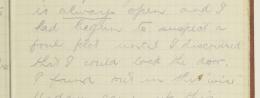 is always open and I
had begun to suspect a
foul plot until I discovered
that I could lock the door.
I found out in this wise.